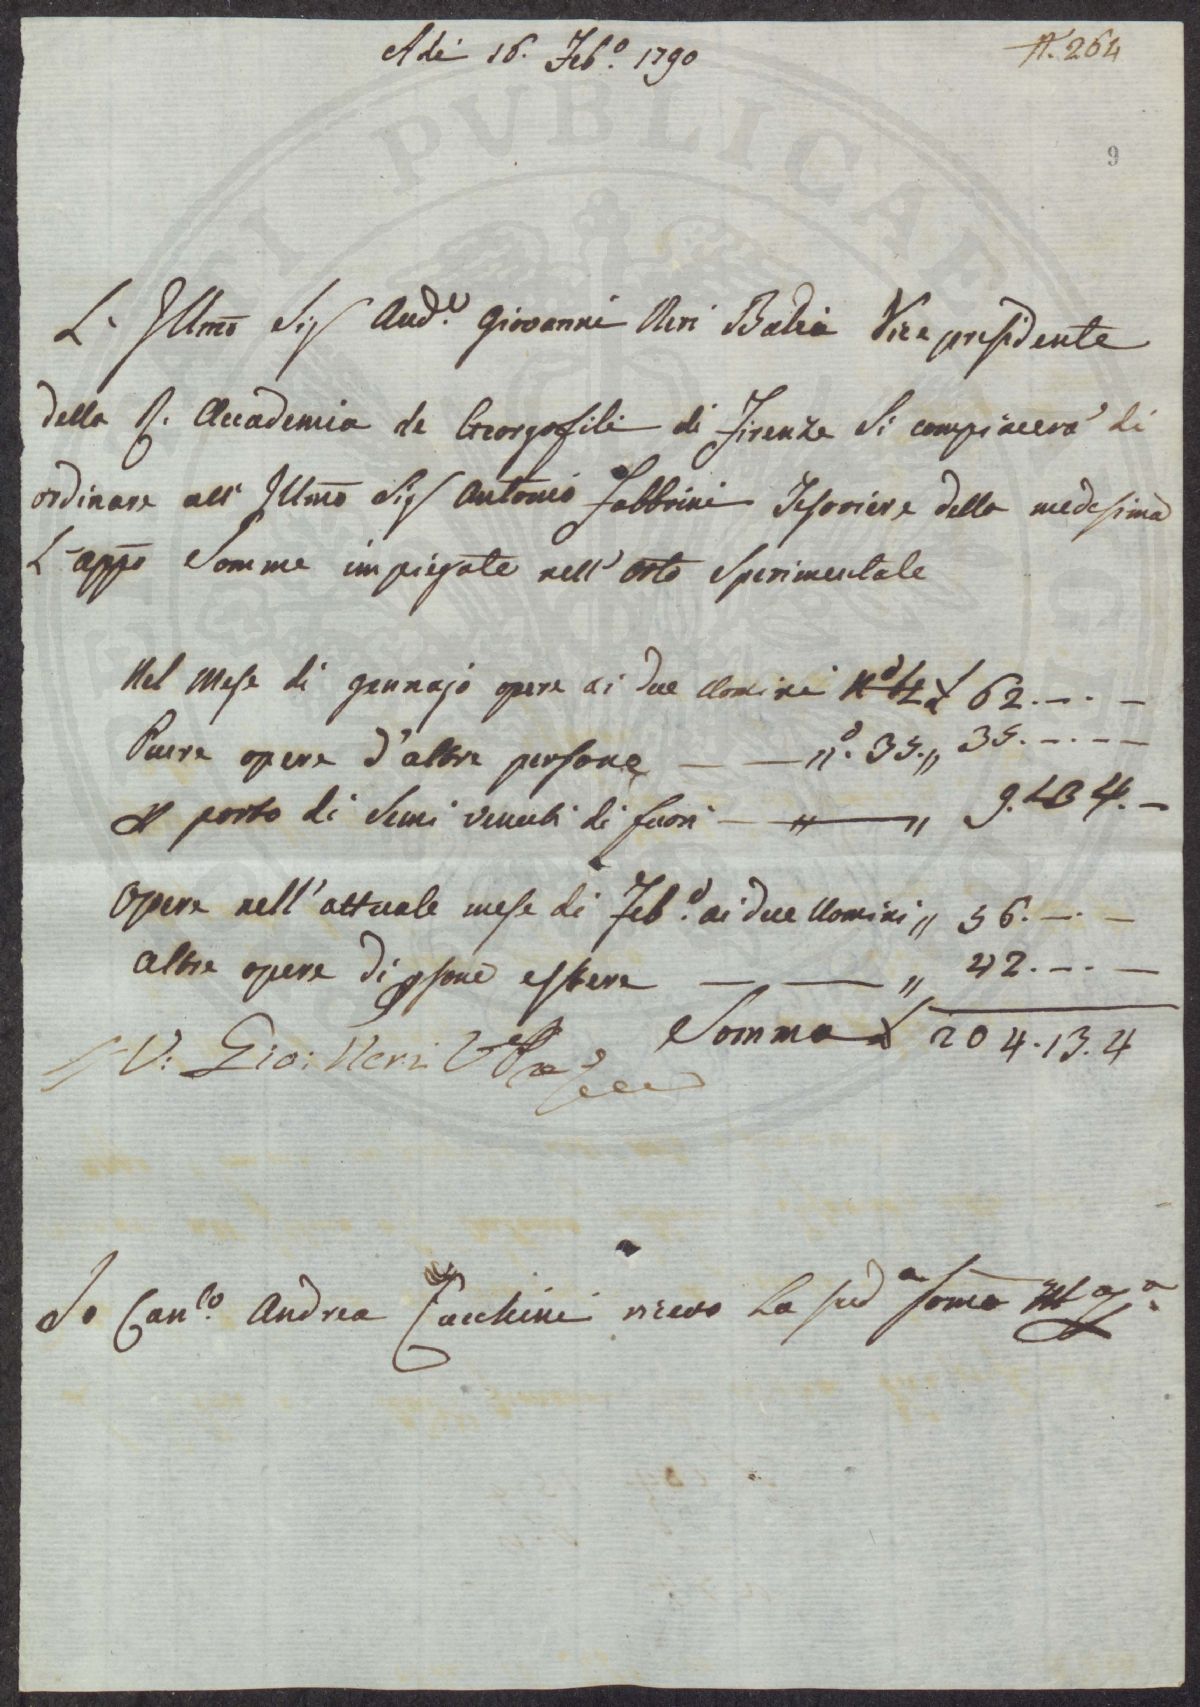 Adi 16. Feb.o 1790
N. 264
9
L' Illmo Sig Aud.e Giovanni Neri Badia Vice presidente
della R. Accademia de Georgofili di Firenze Si compiacerà di
ordinare all' Illmo Sig Antonio Fabbrini Tesoriere della medesima
L' appo Somme impiegate nell' orto Sperimentale
Nel Mese di gennajo opere ai due Uomini No 62 £ 62. — . —
Puere opere d'altre persone — — no. 35. " 35. — . — —
porto di Semi venuti di fuori — " — " 9. 13 4. —
Opere nell' attuale mese di Feb.o ai due Uomini " 56. — . —
altre opere di psone estere — — " 42. — . —
Somma £ 204. 13. 4
V: Gio: Neri
Io Can.co Andrea Zucchini ricevo La sud a somma